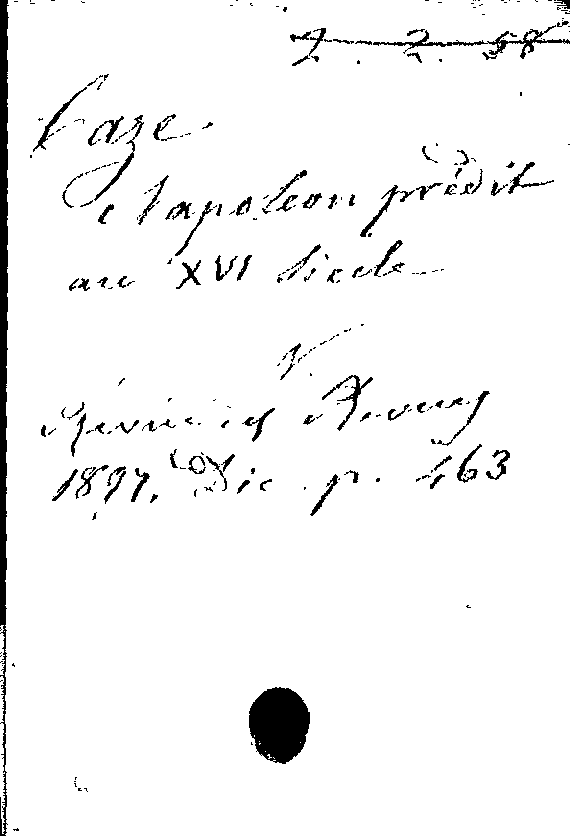 2. 2. 58
Caze
Napoleon prédit
au XVI Siècle
V.
Revue des Revues
1897. Dec. p. 463